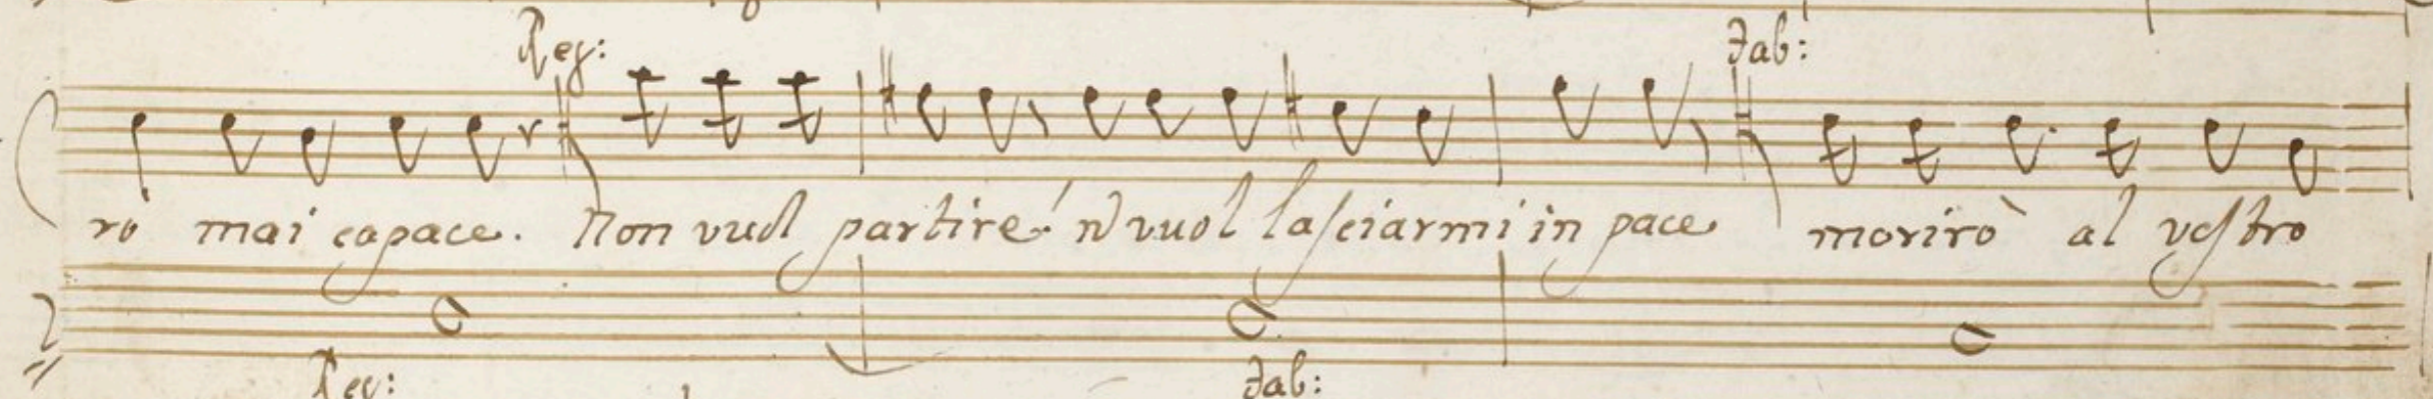 Reg: Fab:
ro mai capace. Non vuol partire! nõ vuol lasciarmi in pace morirò al vostro
Reg: Fab: